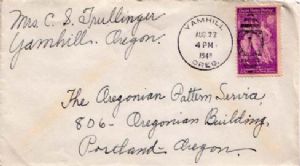 Mrs C. S. Trullinger
Yamhill, Oregon.
YAMHILL
AUG 22
4 PM
OREG.
The Oregonian Pattern Service,
806 - Oregonian Building,
Portland - Oregon.